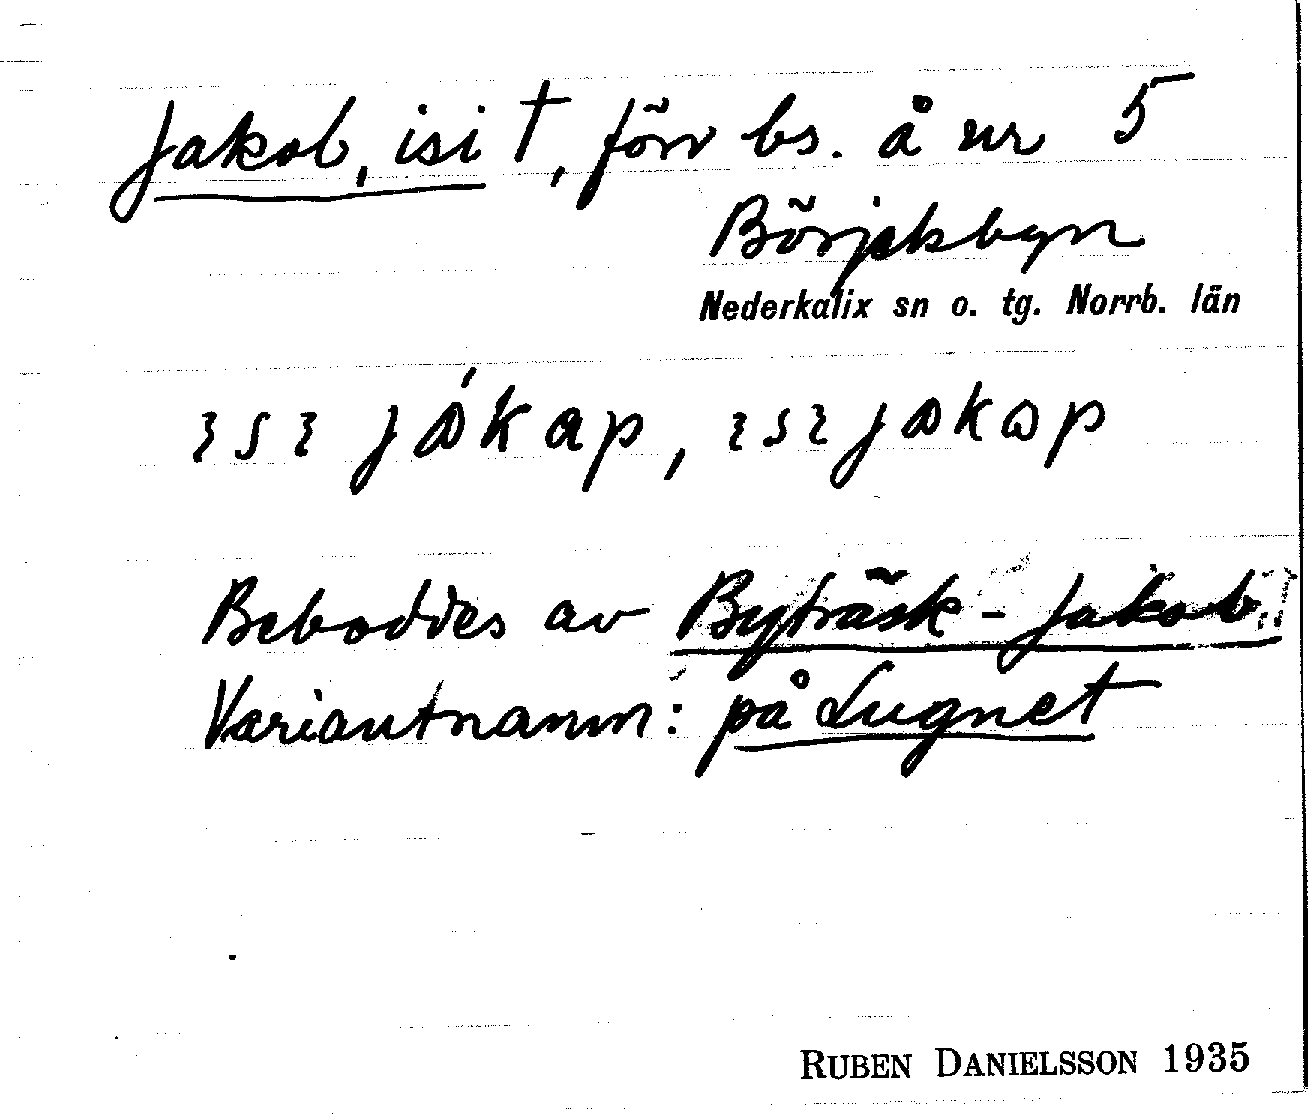 Jakob, isi †, förr bs. å nr 5
Börjelsbyn
Nederkalix sn o. tg. Norrb. län
ısı jákap, ısı jakap
Beboddes av Byträsk-Jakob.
Variantnamn: på Lugnet
RUBEN DANIELSSON 1935